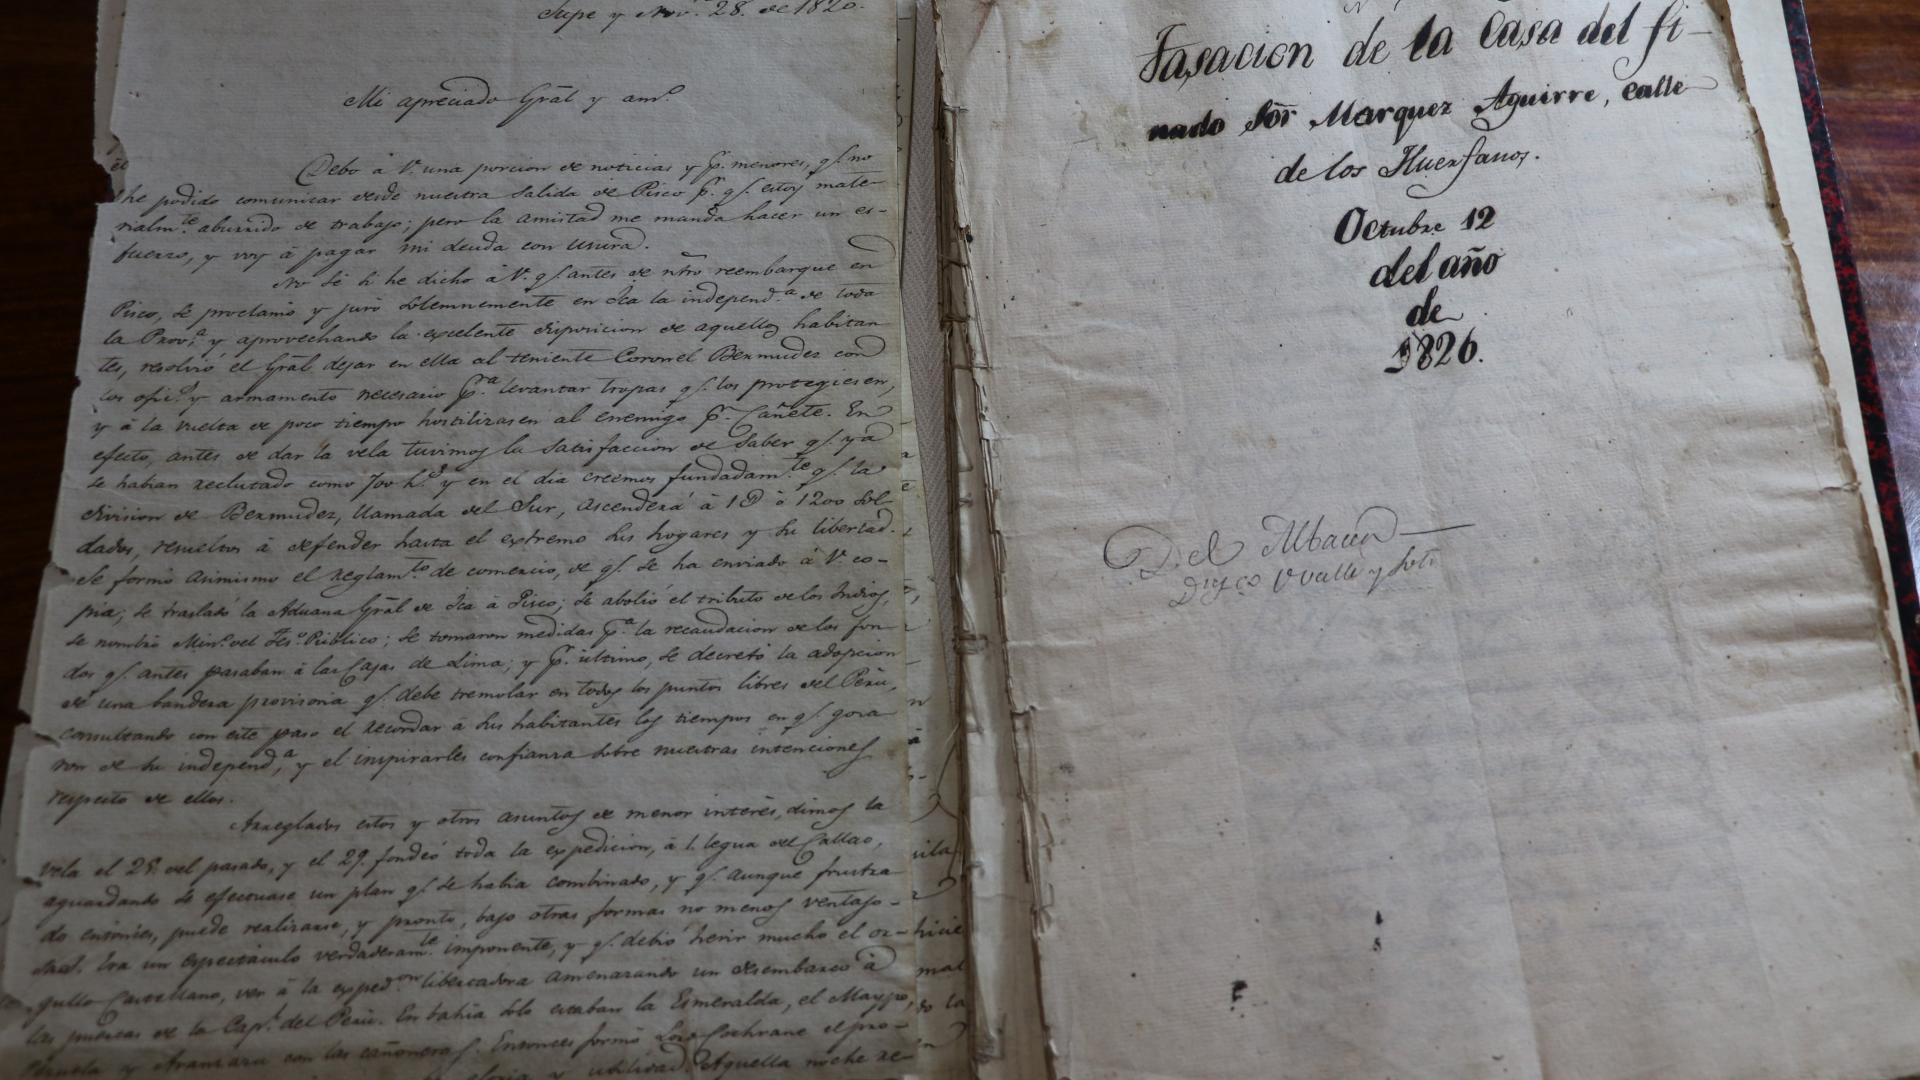 Supe y Nov.e 28. de 1820.
Mi apreciado Grâl y am.o
Debo â V. una porcion de noticias y p.r menores, q.e no
he podido comunicar desde nuestra salida de Pisco p.r q.e estoy mate-
rialm.te aburrido de trabajo; pero la amistad me manda hacer un es-
fuerzo, y voy â pagar mi deuda con usura.
No sé si he dicho â V. q.e antes de ntro reembarque en
Pisco, se proclamó y juró solemnemente en Ica la independ.a de toda
la Prov.a y aprovechando la excelente disposicion de aquellos habitan
tes, resolvió el Grâl dejar en ella al teniente Coronel Bermudez con
los ofic.s y armamento necesario p.ra levantar tropas q.e los protegiesen,
y â la vuelta de poco tiempo hostilizasen al enemigo p.r Cañete. En
efecto, antes de dar la vela tuvimos la satisfaccion de saber q.e ya
se habian reclutado como 700 h.s y en el dia creemos fundadam.te q.e la
division de Bermudez, llamada del Sur, ascenderá â 1D ô 1200 sol
dados, resueltos â defender hasta el extremo sus hogares y su libertad.
Se formó asimismo el reglam.to de comercio, de q.e se ha enviado â V. co-
pia; se trasladó la Aduana Grâl de Ica â Pisco; se abolió el tributo de los Indios,
se nombró Min.o del Tes.o Publico; se tomaron medidas p.a la recaudacion de los fon
dos q.e antes pasaban â las Cajas de Lima; y p.r ultimo, se decretó la adopcion
de una bandera provisoria q.e debe tremolar en todos los puntos libres del Perú,
consultando con este paso el recordar â sus habitantes los tiempos en q.e goza
ron de su independ.a, y el inspirarles confianza sobre nuestras intenciones
respecto de ellos.
Arreglados estos y otros asuntos de menor interés, dimos la
vela el 28 del pasado, y el 29 fondeó toda la expedicion, â 1. legua del Callao,
aguardando se efectuase un plan q.e se habia combinado, y q.e aunque frustra
do entonces, puede realizarse, y pronto, bajo otras formas no menos ventajo-
sas. Era un espectáculo verdaderam.te imponente, y q.e debió herir mucho el or-
gullo Castellano, ver â la exped.on libertadora amenazando un desembarco â
las puertas de la Cap.l del Perú. En bahia solo estaban la Esmeralda, el Maypo,
Pezuela y Aranzazu con las cañoneras. Entonces formó Lord Cochrane el pro-
gloria y utilidad. Aquella noche re-
Tasacion de la Casa del fi-
nado Sôr Marquez Aguirre, calle
de los Huerfanos.
Octubre 12
del año
de
1826.
Del Albacea
Diego Ovalle y Soto